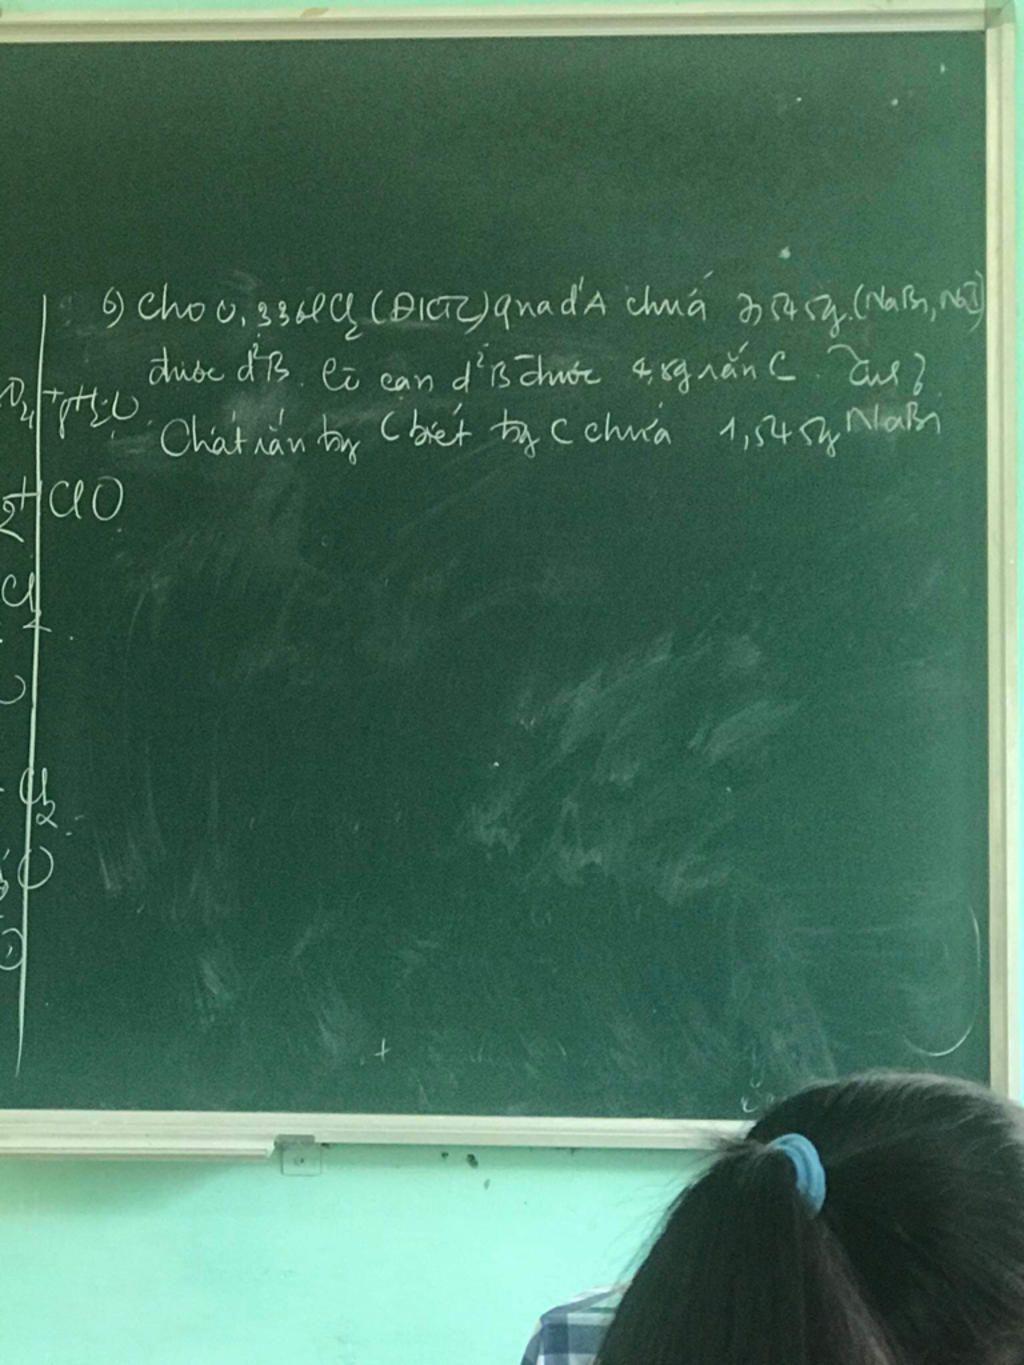 6) Cho 0,336l Cl2 (ĐKTC) qua d² A chứa 7,545g (NaBr, NaI)
được d² B. Cô cạn d² B được 4,8g rắn C. Tìm ?
Chất rắn trg C biết trg C chứa 1,545g NaBr
+ H2O
2+ ClO
Cl2
Cl2